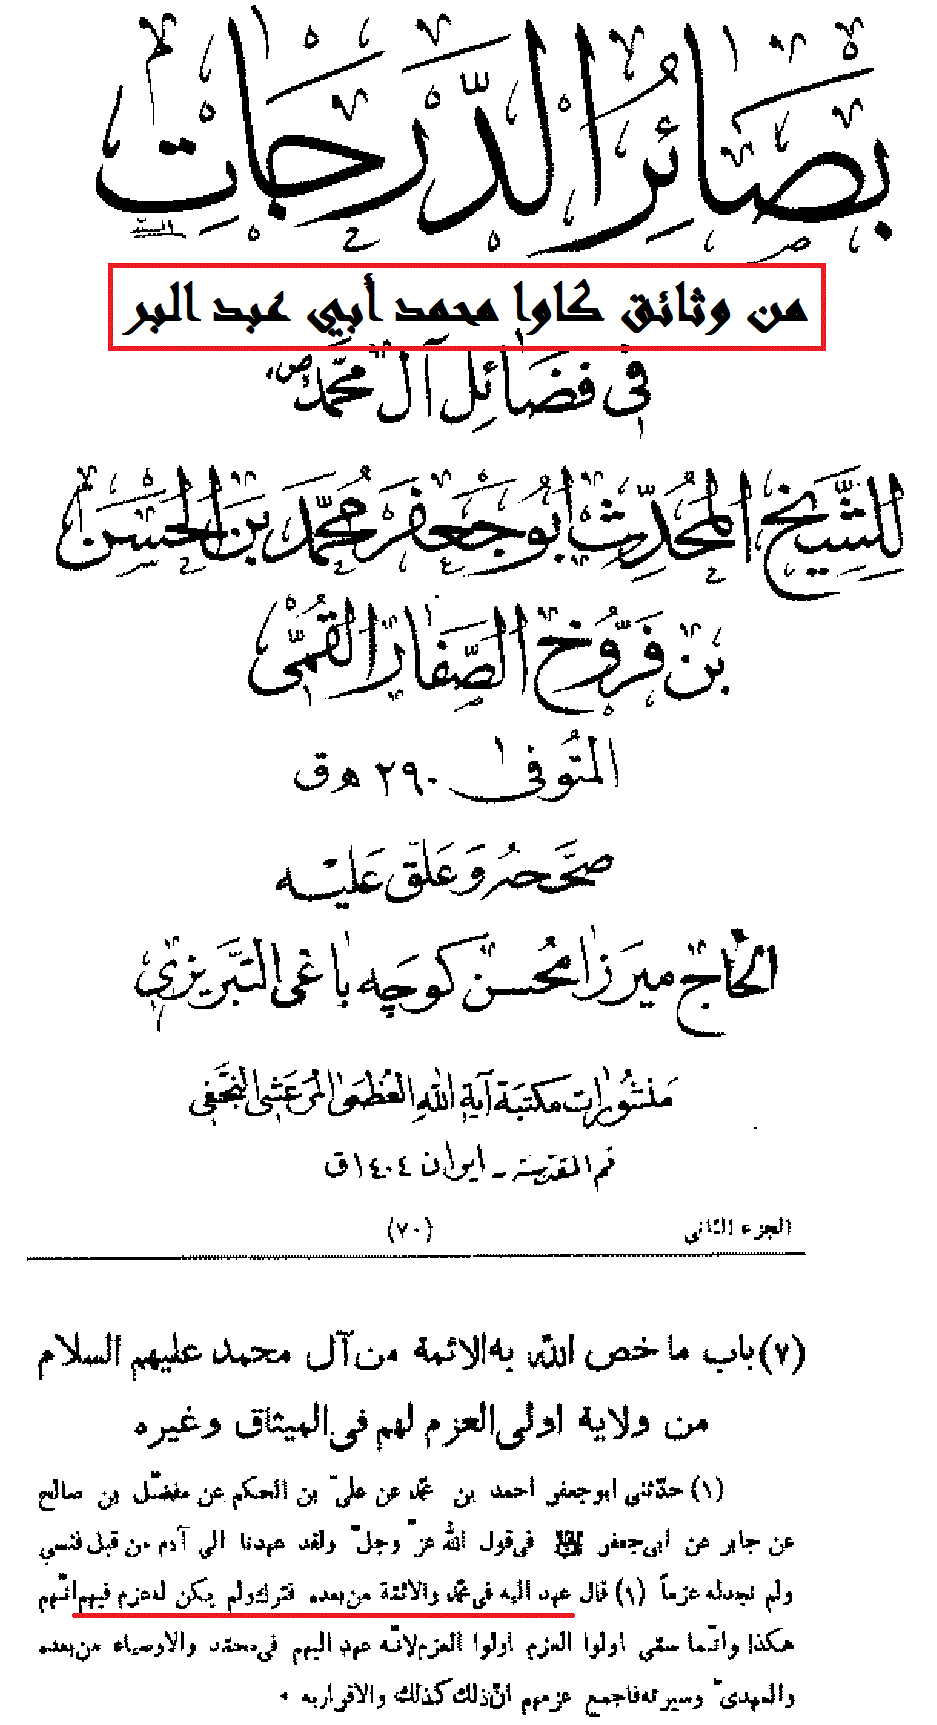 بصائر الدرجات
من وثائق كاوا محمد أبي عبد البر
في فضائل آل محمد (ص)
للشيخ المحدث أبو جعفر محمد بن الحسن
بن فروخ الصفار القمي
المتوفى ٢٩٠ هـ ق
صححه وعلق عليه
الحاج ميرزا محسن كوچه باغي التبريزي
منشورات مكتبة آية الله العظمى المرعشي النجفي
قم المقدسة - ايران ١٤٠٤ ق
الجزء الثاني (٧٠)
(٧) باب ما خص الله به الائمة من آل محمد عليهم السلام
من ولاية اولى العزم لهم فى الميثاق وغيره
(١) حدّثنى ابوجعفر احمد بن محمّد عن علىّ بن الحكم عن مفضّل بن صالح
عن جابر عن ابى جعفر فى قول الله عزّ وجلّ ولقد عهدنا الى آدم من قبل فنسي
ولم نجد له عزماً (١) قال عهد اليه فى محمّد والائمّة من بعده فترك ولم يكن له عزم فيهم انّهم
هكذا وانّما سمّى اولوا العزم اولوا العزم لانّه عهد اليهم فى محمّد والاوصياء من بعده
والمهدىّ وسيرته فاجمع عزمهم انّ ذلك كذلك والاقرار به .